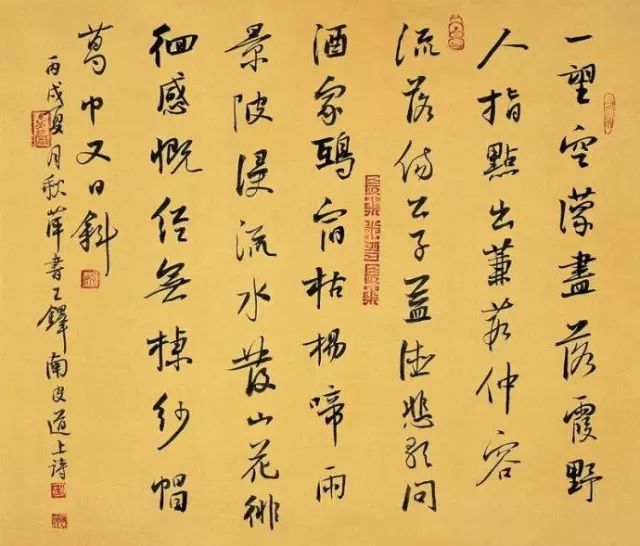 一望空濛盡落霞野
人指點出蒹葭仲容
流落傷公子孟德悲歌問
酒家鵶宿枯楊啼雨
景陂浸流水發山花徘
徊感慨經無棟紗帽
葛巾又日斜
丙戌夏月秋萍書王鐸南皮道上詩